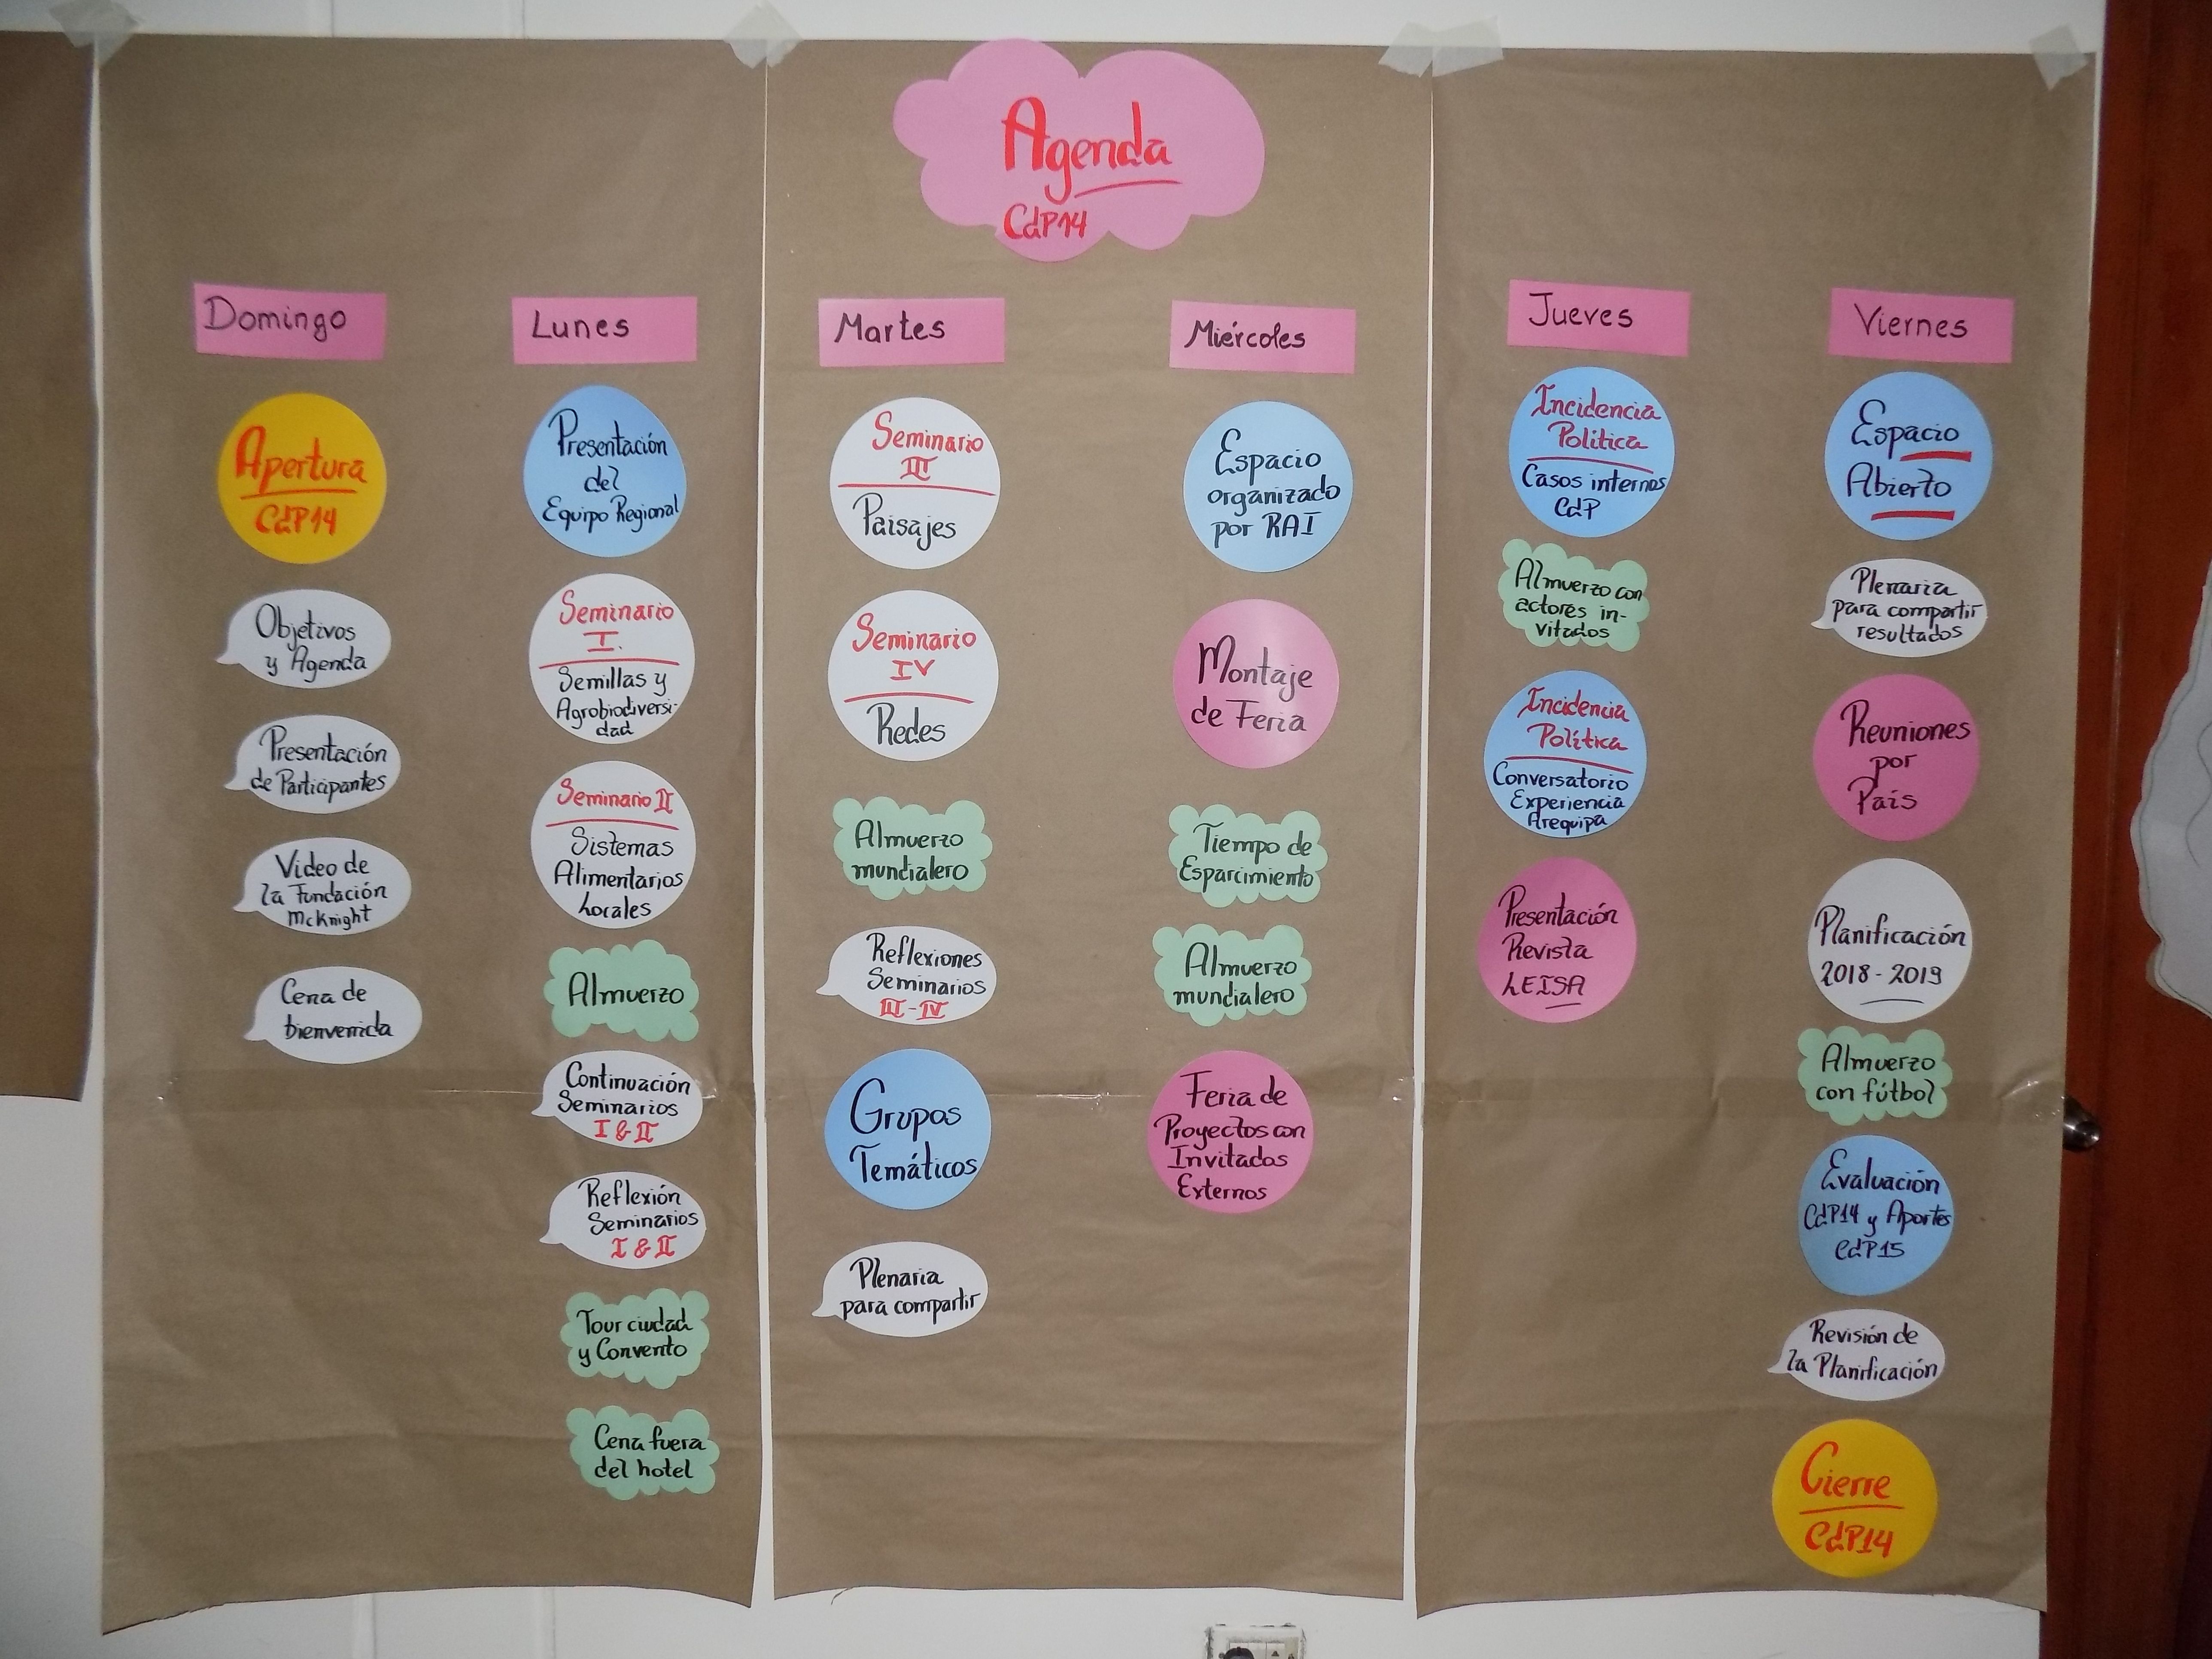 Agenda
CdP14
Domingo
Apertura
CdP14
Objetivos
y Agenda
Presentación
de Participantes
Video de
la Fundación
McKnight
Cena de
bienvenida
Lunes
Presentación
del
Equipo Regional
Seminario
I.
Semillas y
Agrobiodiversi-
dad
Seminario II
Sistemas
Alimentarios
Locales
Almuerzo
Continuación
Seminarios
I & II
Reflexión
Seminarios
I & II
Tour ciudad
y Convento
Cena fuera
del hotel
Martes
Seminario
III
Paisajes
Seminario
IV
Redes
Almuerzo
mundialero
Reflexiones
Seminarios
III-IV
Grupos
Temáticos
Plenaria
para compartir
Miércoles
Espacio
organizado
por RAI
Montaje
de Feria
Tiempo de
Esparcimiento
Almuerzo
mundialero
Feria de
Proyectos con
Invitados
Externos
Jueves
Incidencia
Política
Casos internos
CdP
Almuerzo con
actores in-
vitados
Incidencia
Política
Conversatorio
Experiencia
Arequipa
Presentación
Revista
LEISA
Viernes
Espacio
Abierto
Plenaria
para compartir
resultados
Reuniones
por
País
Planificación
2018-2019
Almuerzo
con fútbol
Evaluación
CdP14 y Aportes
CdP15
Revisión de
la Planificación
Cierre
CdP14